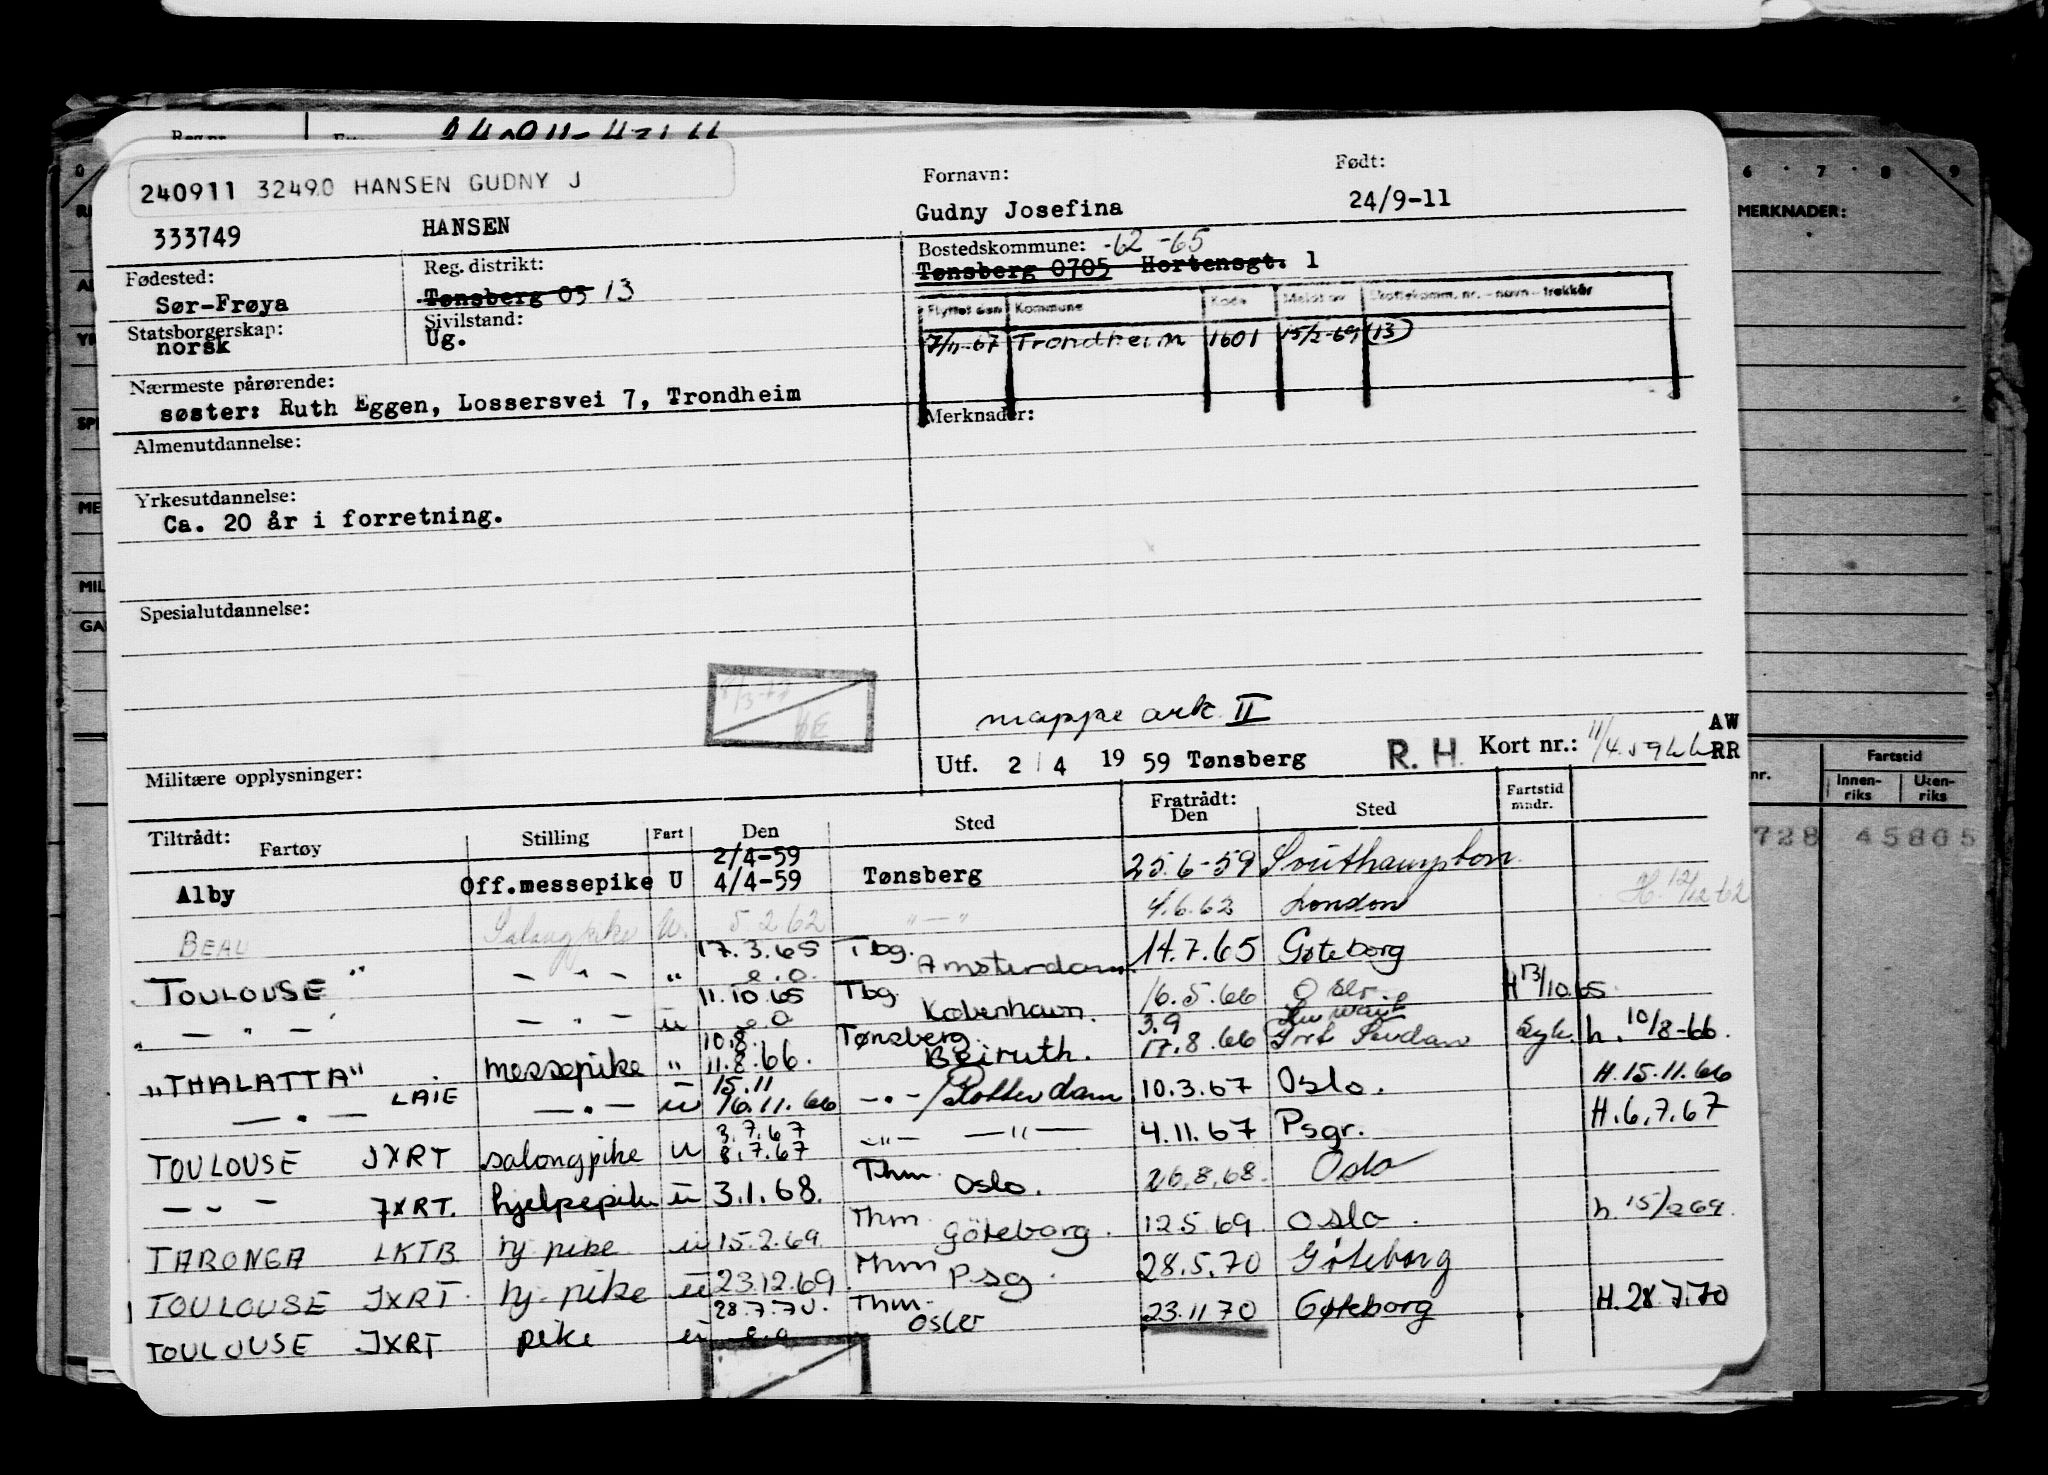 240911 32490 HANSEN GUDNY J
333749 HANSEN
Fornavn: Født:
Gudny Josefina 24/9-11
Fødested: Reg. distrikt: Bostedskommune: -62 -65
Sør-Frøya Tønsberg 05 13 Tønsberg 0705 Hortensgt. 1
Statsborgerskap: Sivilstand:
norsk Ug.
Flyttet den Kommune Kode Meldt av Skattekomm. nr. - navn - trekkår
7/11-67 Trondheim 1601 15/2-69 (13)
Nærmeste pårørende:
søster: Ruth Eggen, Lossersvei 7, Trondheim
Merknader:
Almenutdannelse:
Yrkesutdannelse:
Ca. 20 år i forretning.
Spesialutdannelse:
mappe ark II
Militære opplysninger:
Utf. 2/4 19 59 Tønsberg R. H. Kort nr.: 11/4.59 AW RR
Tiltrådt: Fratrådt:
Fartøy Stilling Fart Den Sted Den Sted Fartstid mndr.
Alby Off.messepike U 2/4-59 4/4-59 Tønsberg 25.6-59 Southampton
BEAU Salongpike U. 5.2.62 " — " 4.6.62 London H. 12/12 62
"TOULOUSE" — " — " 17.3.65 Tbg. Amsterdam 14.7.65 Gøteborg
— " — — " — ü 11.10.65 Tbg. København. 16.5.66 Oslo H 13/10.65
"THALATTA" messepike " 10.8. 11.8.66. Tønsberg Beiruth. 3.9 17.8.66 Port Sudan Syk. h. 10/8-66.
— " — LAIE — " — ü 15.11 16.11.66 — " — / Rotterdam 10.3.67 Oslo. H.15.11.66
TOULOUSE JXRT salongpike u 3.7.67 8.7.67 — " — — " — 4.11.67 Psgr. H.6.7.67
— " — JXRT. hjelpepike ü 3.1.68. Thm. Oslo. 26.8.68. Oslo
TARONGA LKTB hj. pike ü 15.2.69 Thm Göteborg. 12.5.69 Oslo. h. 15/2 69.
TOULOUSE JXRT hj. pike ü 23.12.69. Thm Psg. 28.5.70 Göteborg
TOULOUSE JXRT pike ü 28.7.70. Thm. Oslo 23.11.70 Gøteborg H.28.7.70
6 7 8 9
MERKNADER:
nr. Fartstid
Innen-riks Uten-riks
728 45805